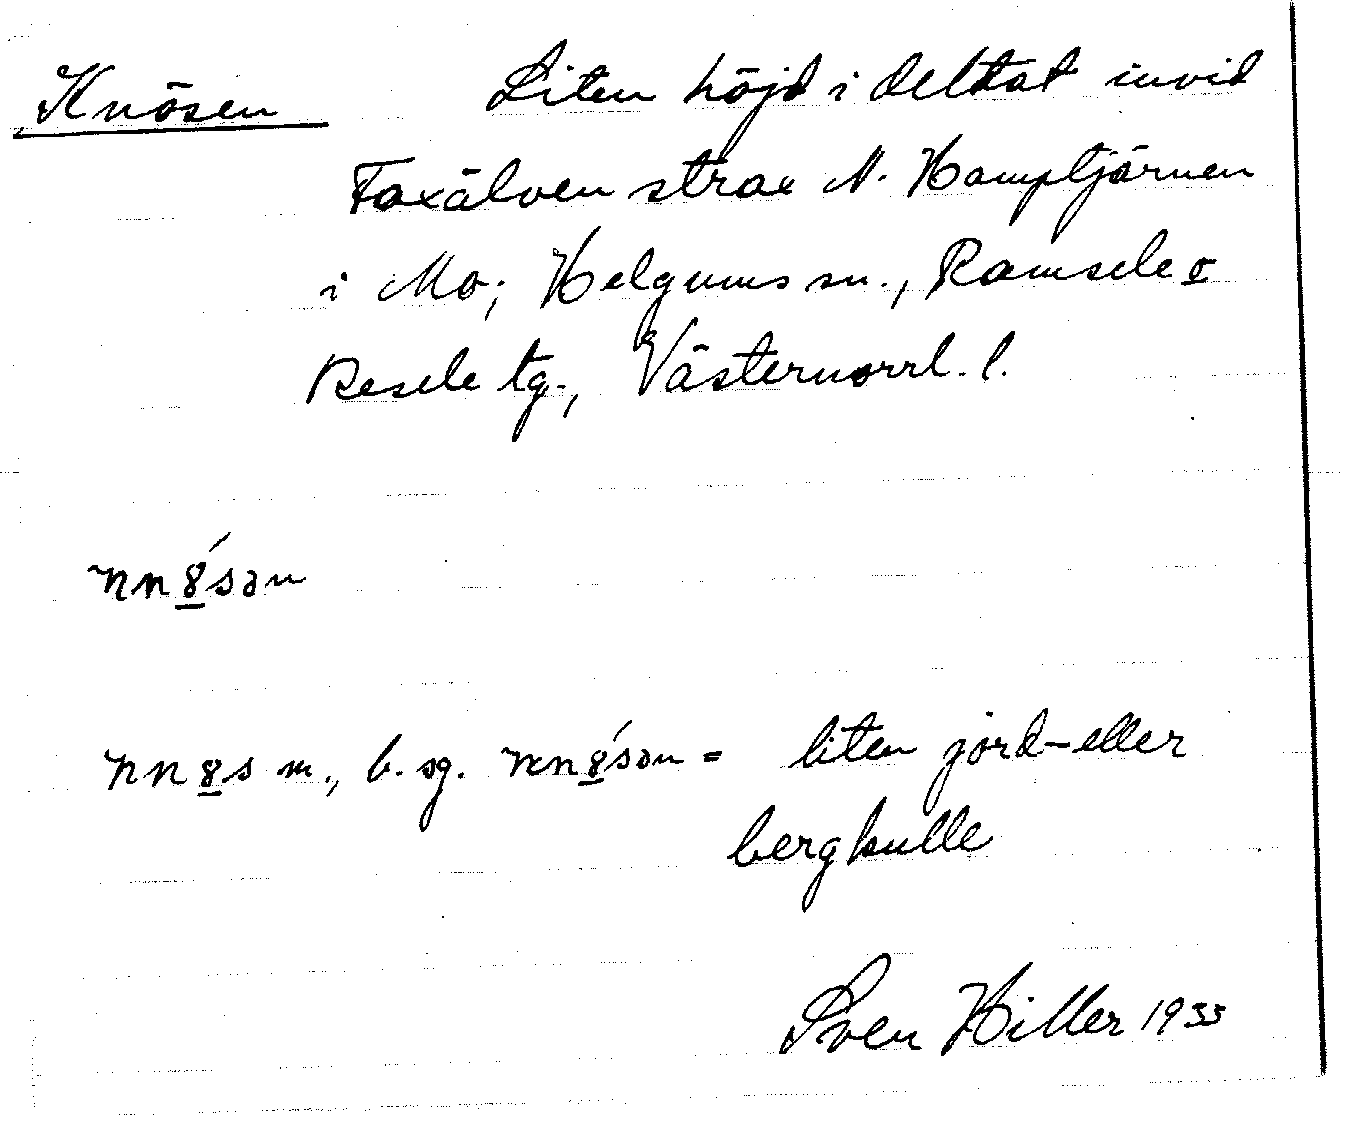 Knösen Liten höjd i deltat invid
Faxälven strax N. Hamptjärnen
i Mo; Helgums sn., Ramsele o
Resele tg., Västernorrl. l.
nn8́sən
nn8s m., b. sg. nn8́sən = liten jord- eller
bergkulle
Sven Hiller 1933